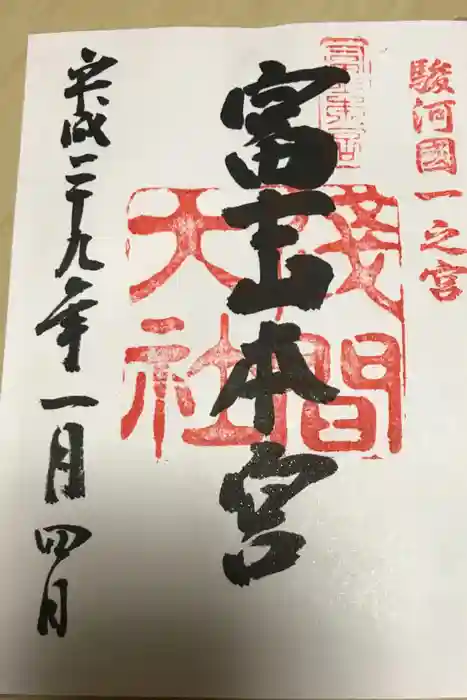 駿河國一之宮
富士山本宮
淺間
大社
平成二十九年一月四日